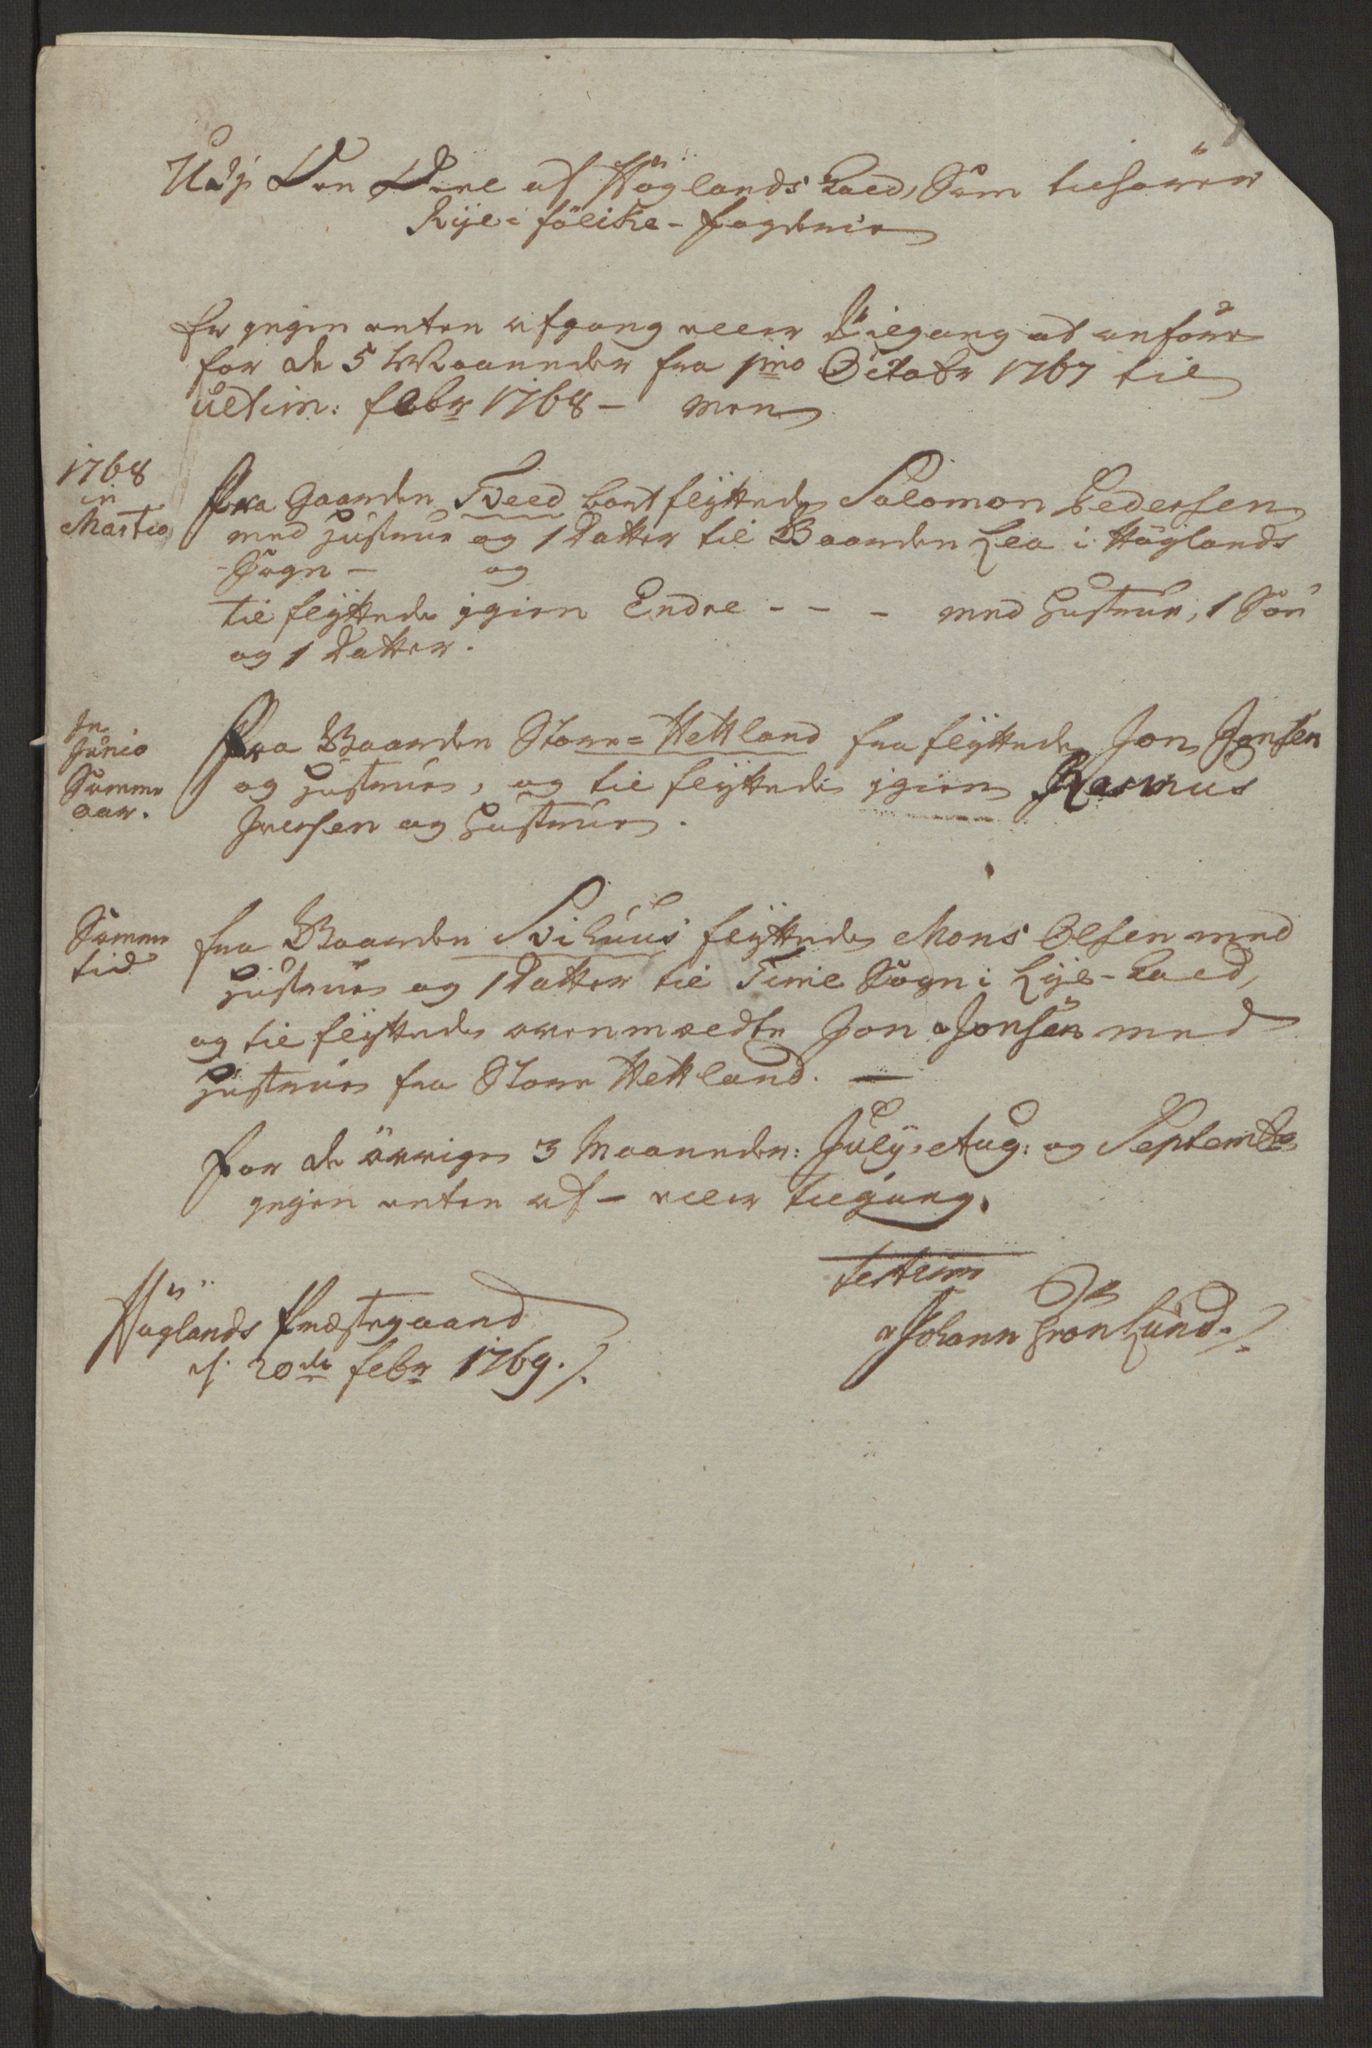 Udj Den Deel af Höglands Kald, Som tilhører
Ryefölcke-Fogderie
Er ingen enten afgang eller Tilgang at anföre
for de 5 Maaneder fra 1mo Octobr 1767 til
ultim: Febr 1768 - men
1768
in
Martio
Fra Gaarden Tveed bortflyttede Salomon Pedersen
med Hustrue og 1 Datter til Gaarden Lea i Höglands
Sogn - og
tilflyttede igien Endre - - - med Hustrue, 1 Sön
og 1 Datter.
In
Junio
Samme
aar.
Fra Gaarden Store=Hettland fraflyttede Jon Jonsen
og Hustrue, og tilflyttede igien Rasmus
Iversen og Hustrue.
Samme
tid
fra Gaarden Svihuus flyttede Mons Olsen med
Hustrue og 1 Datter til Time Sogn i Lye-Kald,
og tilflyttede ovenmeldte Jon Jonsen med
Hustrue fra Store Hettland. -
For de övrige 3 Maaneder: July, Aug: og Septembr
ingen enten af - eller tilgang.
testerer
Höglands Præstegaard
d. 20de Febr 1769 ./.
Johann Grönlund ./.